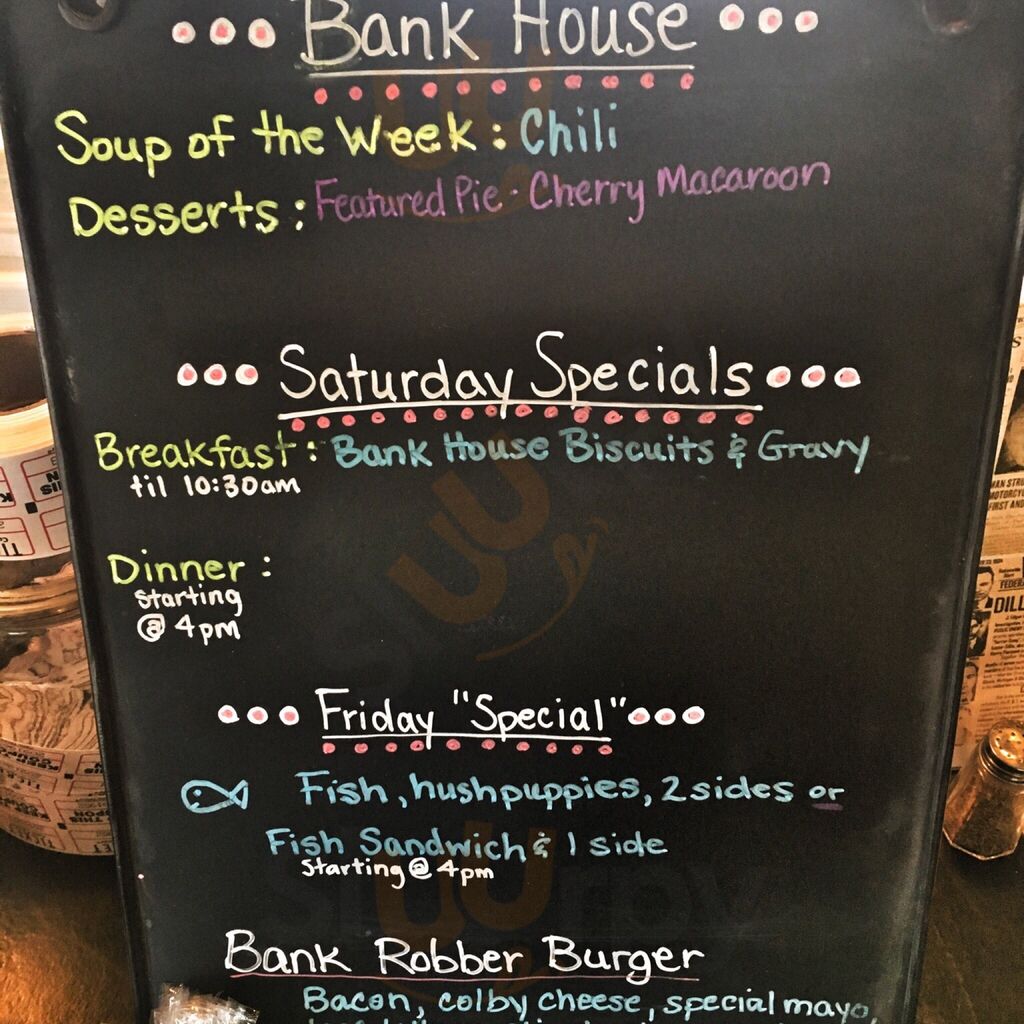 Bank House
Soup of the Week: Chili
Desserts: Featured Pie - Cherry Macaroon
Saturday Specials
Breakfast: Bank House Biscuits & Gravy
til 10:30am
Dinner:
starting
@ 4pm
Friday "Special"
Fish, hushpuppies, 2 sides or
Fish Sandwich & 1 side
Starting @ 4pm
Bank Robber Burger
Bacon, colby cheese, special mayo,